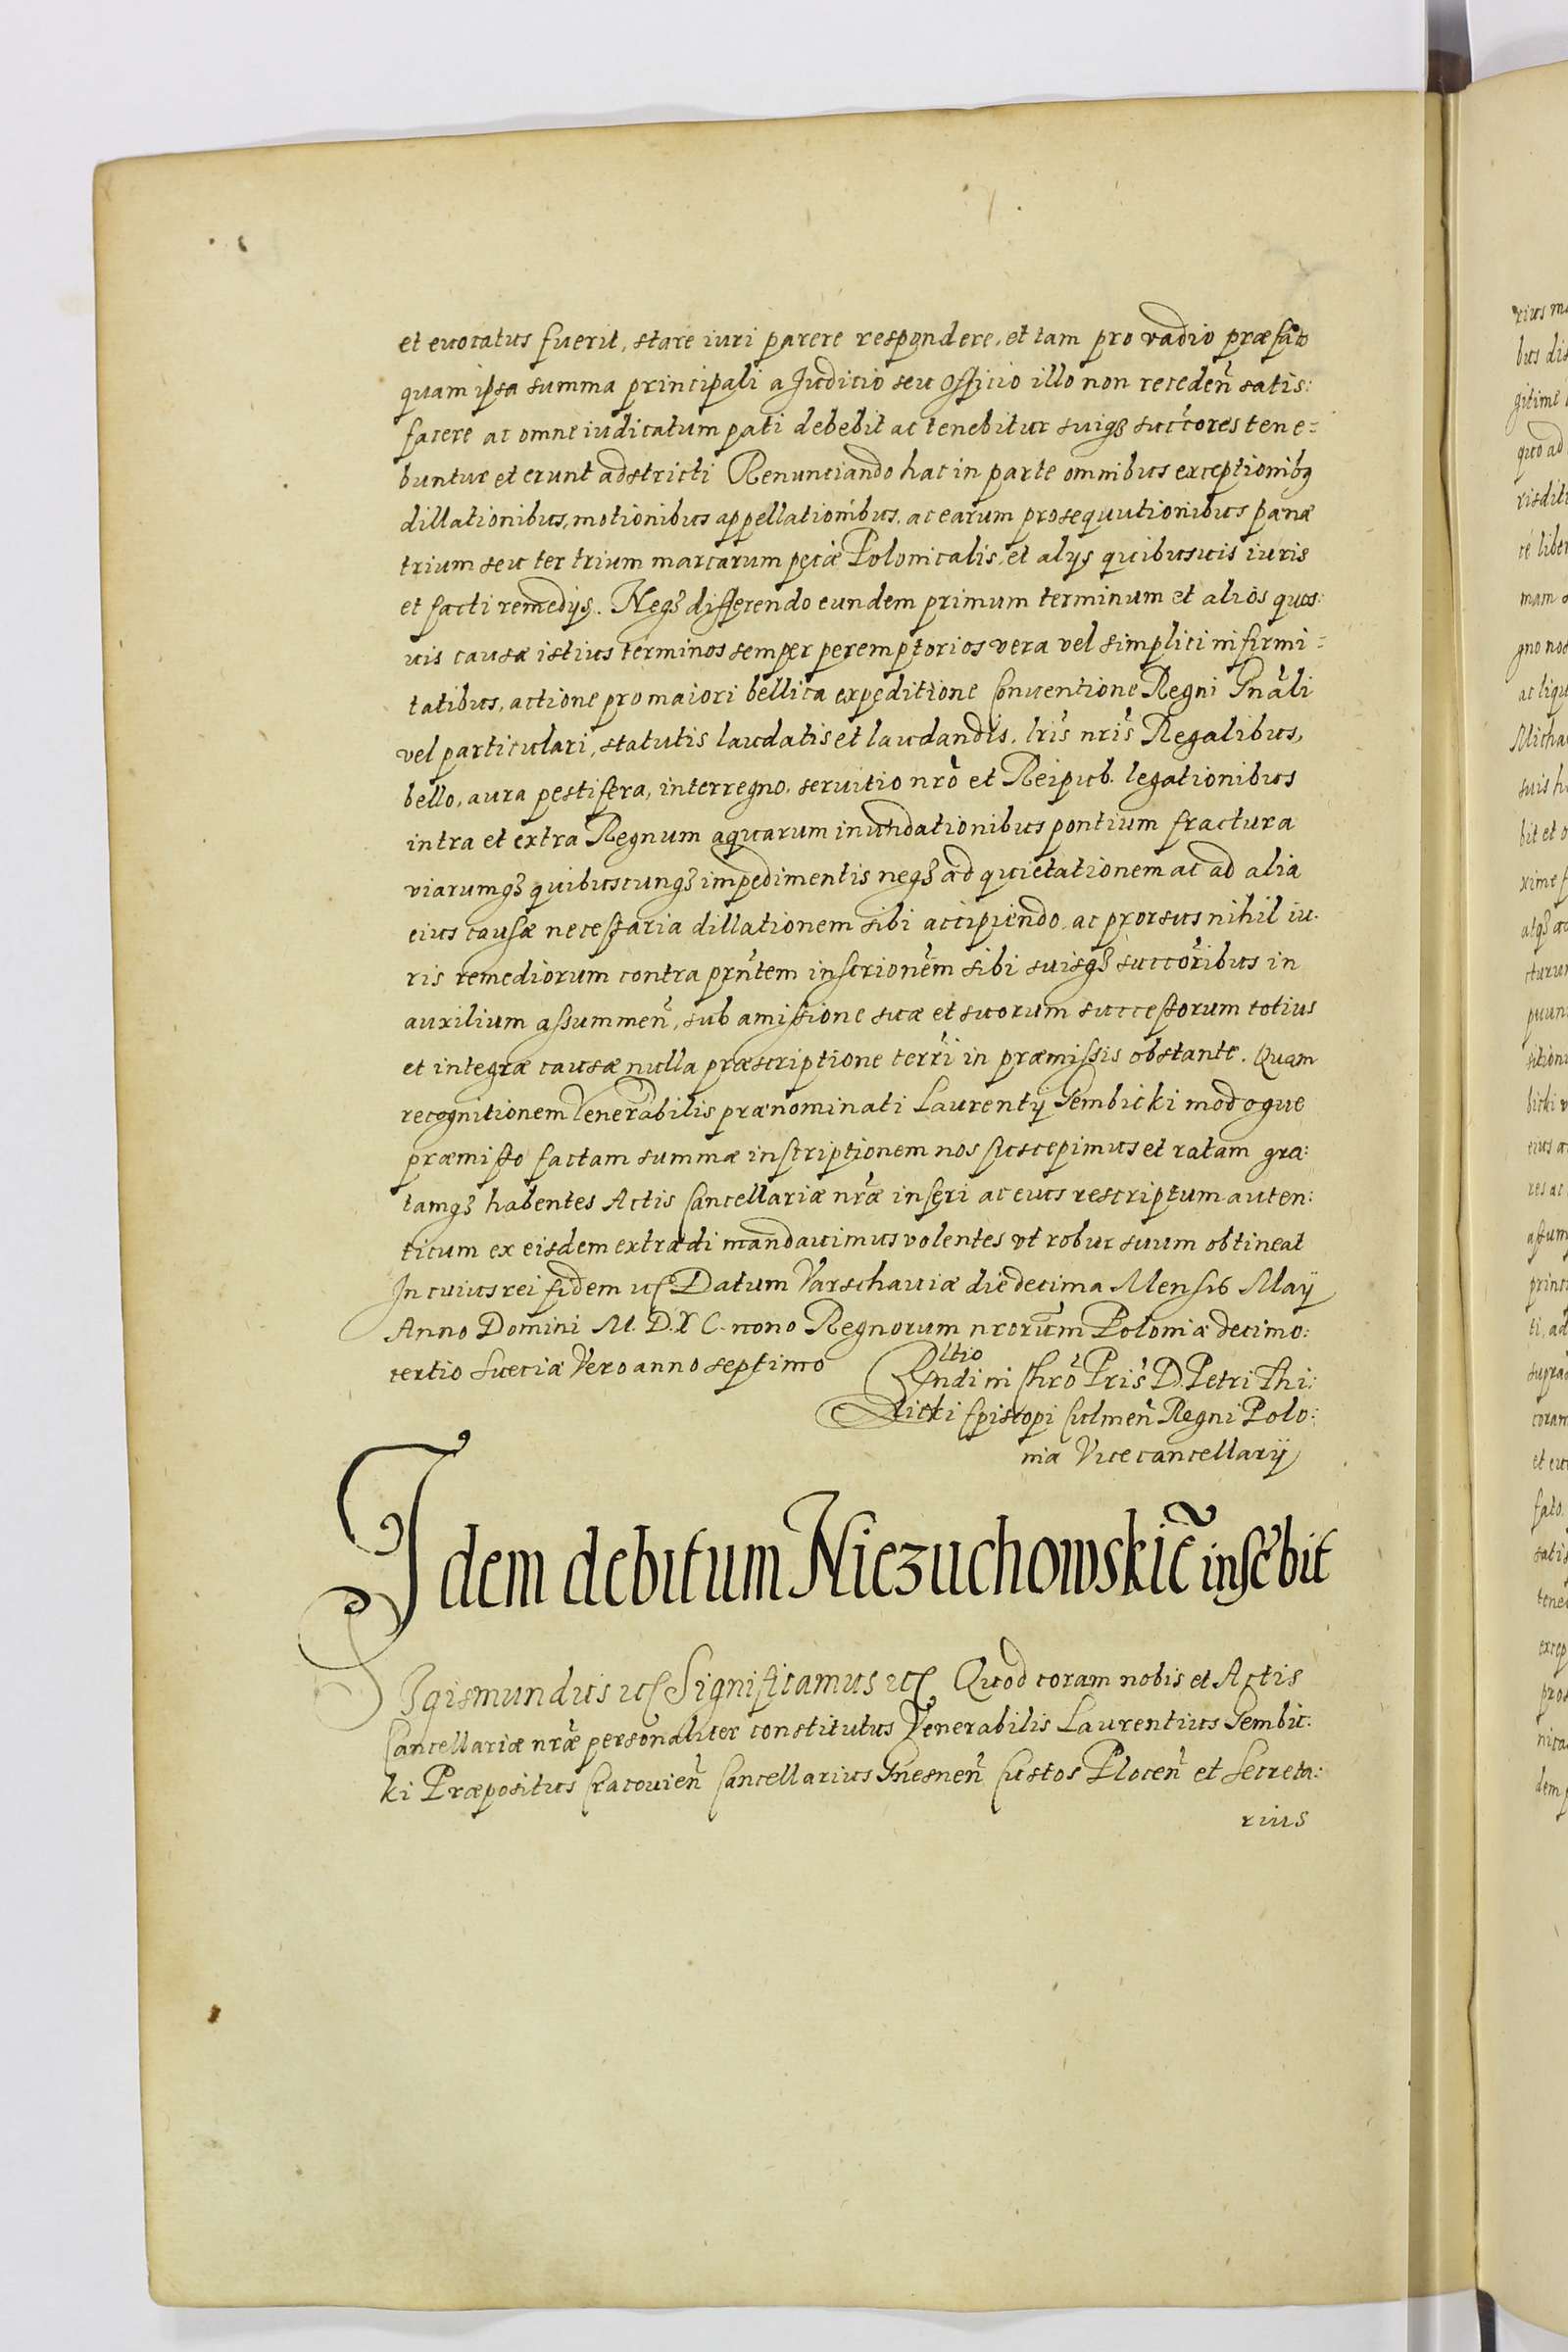 et euocatus fuerit, stare iuri parere respondere, et tam pro vadio præfato
quam ipsa summa principali a Juditio seu Officio illo non receden̄ satis:
facere ac omne iudicatum pati debebit ac tenebitur suiqȝ succ̄ores tene=
buntur et erunt adstricti Renunciando hac in parte omnibus exceptionibꝫ
dillationibus, motionibus appellationibus, ac earum prosequutionibus pænæ
trium seu ter trium marcarum pec̄iæ Polonicalis, et alÿs quibusuis iuris
et facti remedÿs. Neqȝ differendo eundem primum terminum et alios quos:
uis causæ istius terminos semper peremptorios vera vel simplici infirmi=
tatibus, actione pro maiori bellica expeditione Conuentione Regni Gn̄ali
vel particulari, statutis laudatis et laudandis, lris̄ nris̄ Regalibus,
bello, aura pestifera, interregno, seruitio nrō et Reipub. legationibus
intra et extra Regnum aquarum inundationibus pontium fractura
viarumqȝ quibuscunqȝ impedimentis neqȝ ad quietationem ac ad alia
eius causæ necessaria dillationem sibi accipiendo, ac prorsus nihil iu:
ris remediorum contra prn̄tem inscrionēm sibi suisqȝ succor̄ibus in
auxilium assummen̄, sub amissione suæ et suorum successorum totius
et integræ causæ nulla præscriptione terr̄i in præmissis obstante. Quam
recognitionem Venerabilis prænominati Laurentÿ Gembicki modoque
præmisso factam summæ inscriptionem nos suscepimus et ratam gra:
tamqȝ habentes Actis Cancellariæ nrǣ inseri ac eius rescriptum auten:
ticum ex eisdem extradi mandauimus volentes vt robur suum obtineat
In cuius rei fidem etc Datum Varschauiæ die decima Mensis Maÿ
Anno Domini M. D. X C. nono Regnorum nrorūm Poloniæ decimo:
tertio Sueciæ Vero anno septimo
Rltio
Rndi in Chrō Pris̄ D. Petri Thi:
licki Episcopi Culmen̄ Regni Polo:
niæ Vicecancellarÿ
Idem debitum Niezuchowskiē inscr̄bit
Sigismundus etc Significamus etc Quod coram nobis et Actis
Cancellariæ nrǣ personaliter constitutus Venerabilis Laurentius Gembic:
ki Præpositus Cracouien̄ Cancellarius Gnesnen̄ Custos Plocen̄ et Secreta:
rius